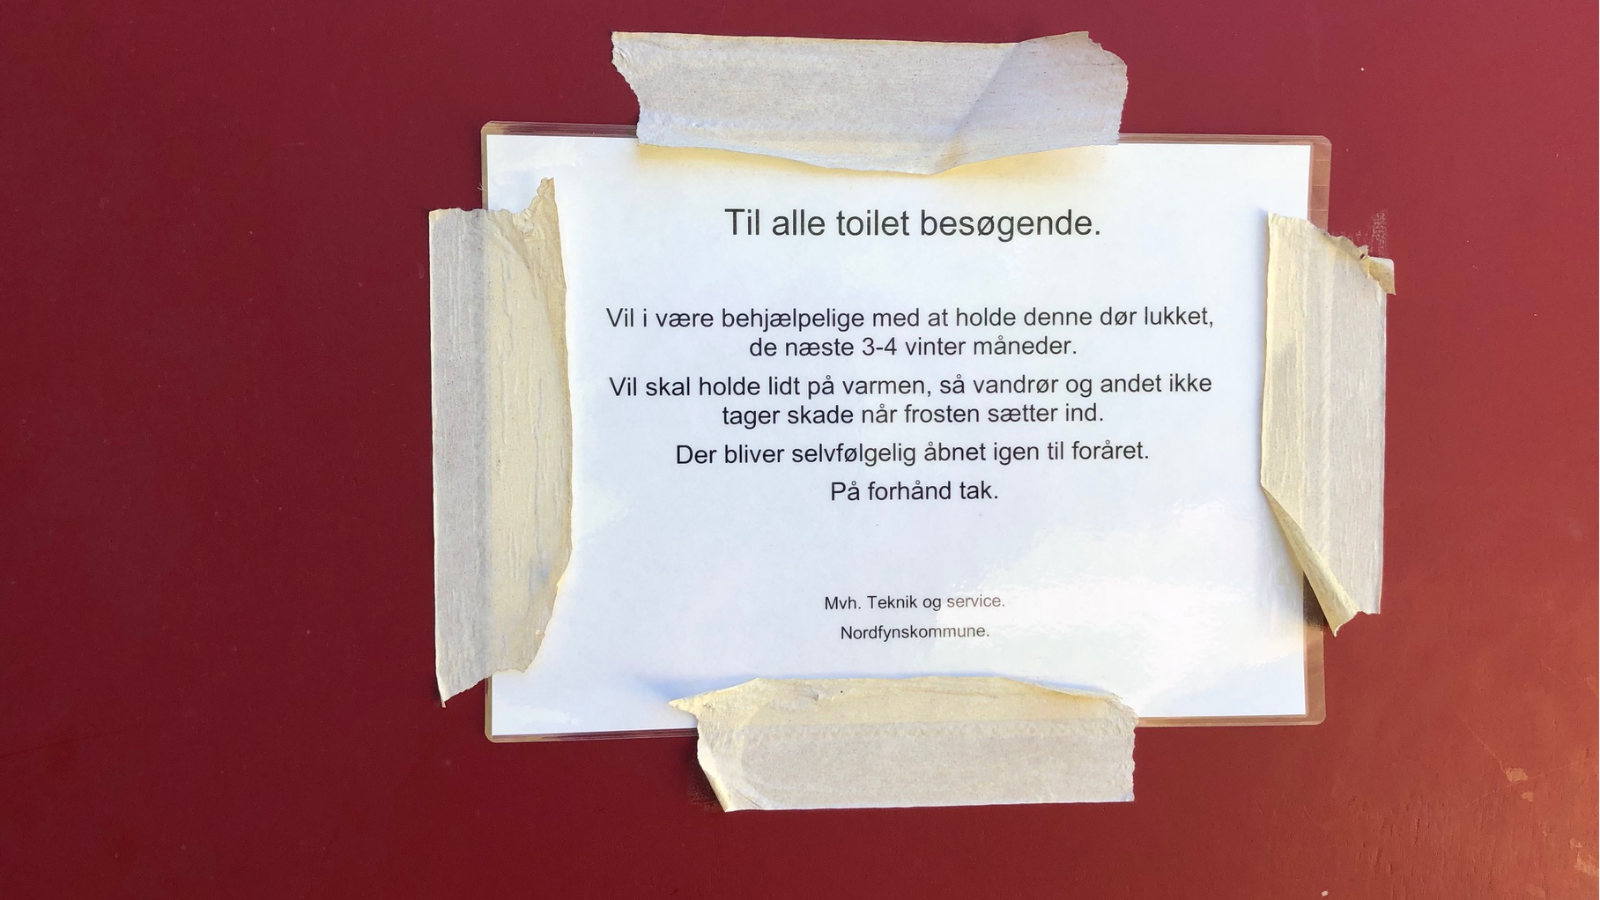 Til alle toilet besøgende.
Vil i være behjælpelige med at holde denne dør lukket,
de næste 3-4 vinter måneder.
Vil skal holde lidt på varmen, så vandrør og andet ikke
tager skade når frosten sætter ind.
Der bliver selvfølgelig åbnet igen til foråret.
På forhånd tak.
Mvh. Teknik og service.
Nordfynskommune.